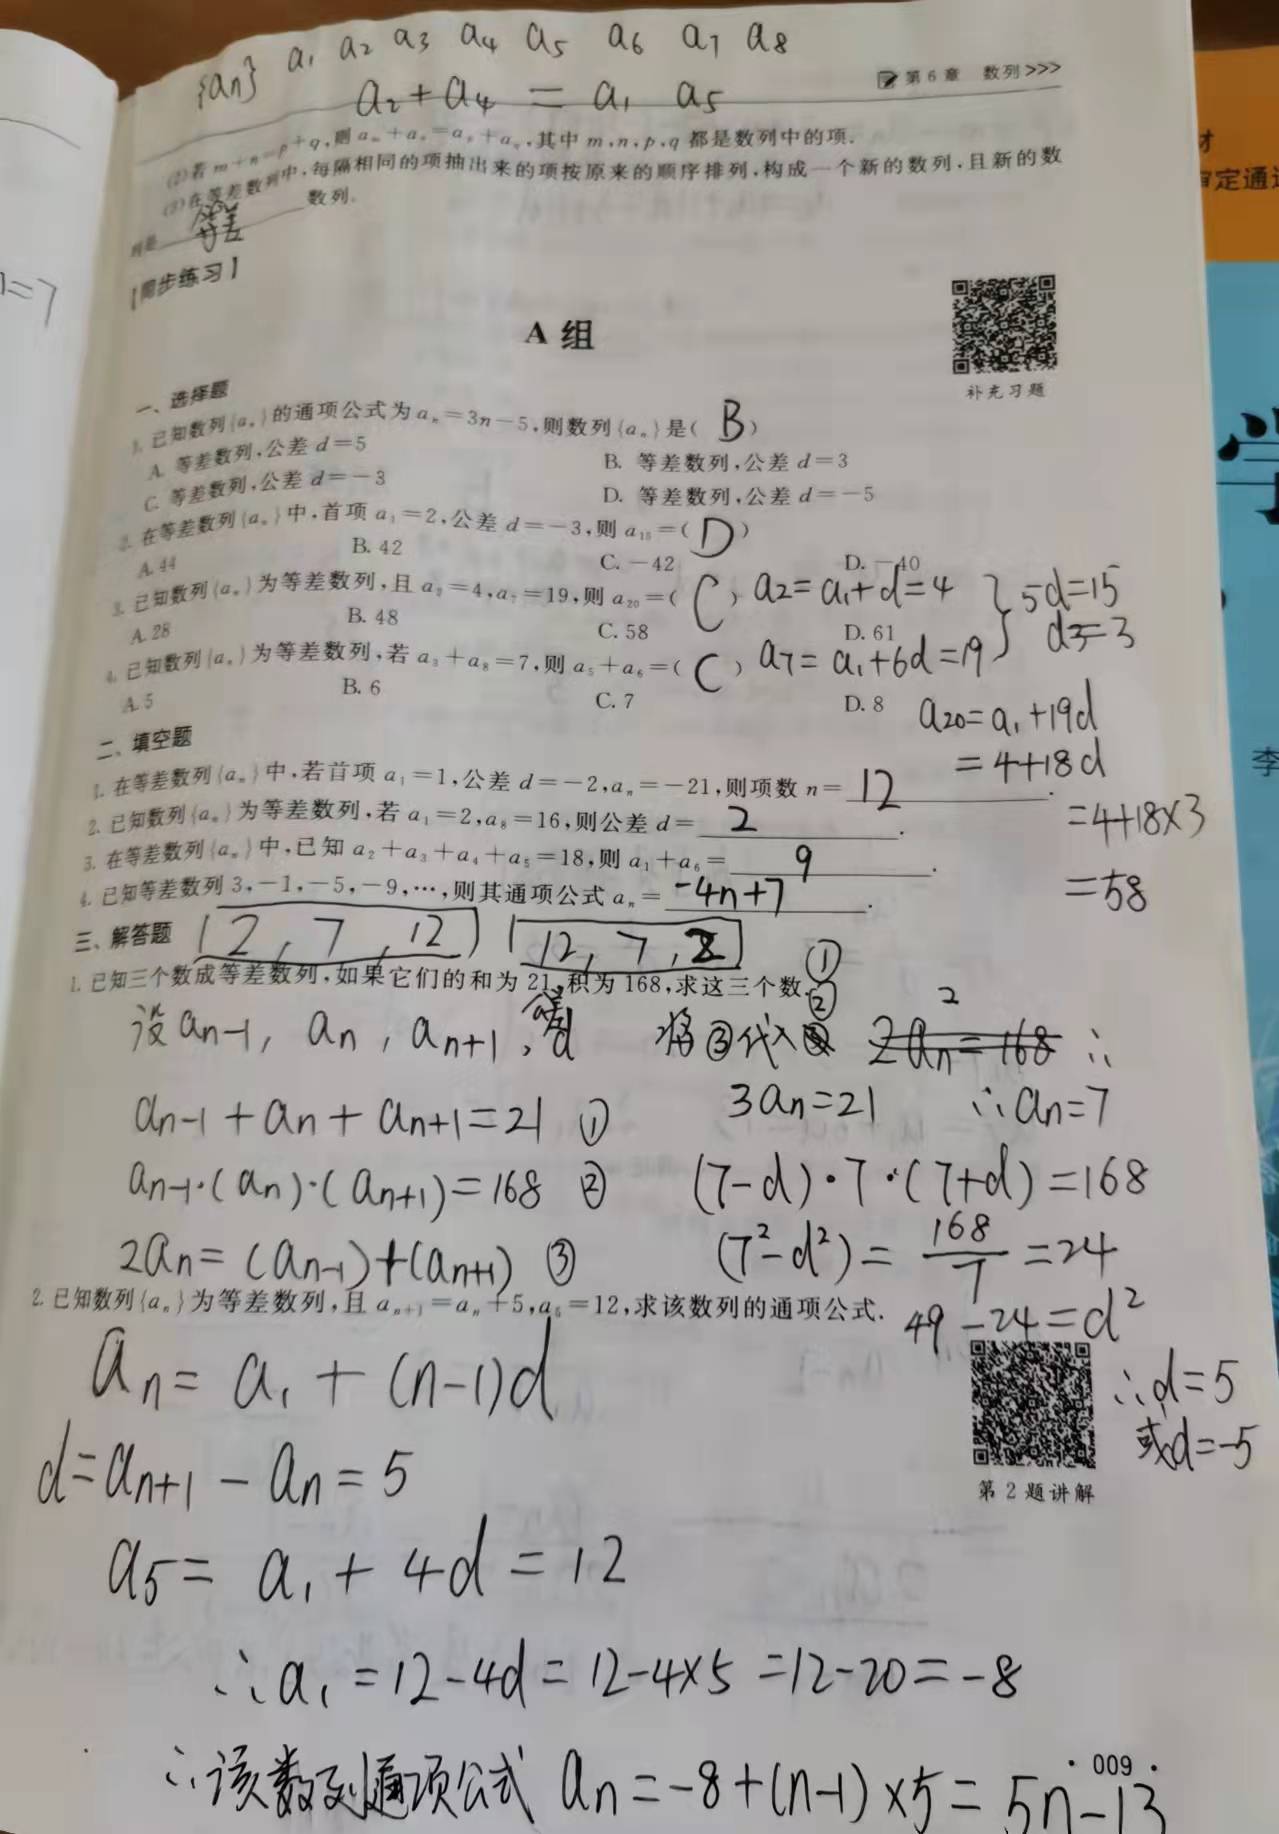 {an} a₁ a₂ a₃ a₄ a₅ a₆ a₇ a₈
a₂+a₄ = a₁ a₅
第6章 数列>>>
(2)若m+n=p+q,则aₘ+aₙ=aₚ+a_q,其中m,n,p,q都是数列中的项.
(3)在等差数列中,每隔相同的项抽出来的项按原来的顺序排列,构成一个新的数列,且新的数
列是 等差 数列.
n=7
【同步练习】
A 组
补充习题
一、选择题
1. 已知数列{aₙ}的通项公式为aₙ=3n-5,则数列{aₙ}是( B )
A. 等差数列,公差d=5
B. 等差数列,公差d=3
C. 等差数列,公差d=-3
D. 等差数列,公差d=-5
2. 在等差数列{aₙ}中,首项a₁=2,公差d=-3,则a₁₅=( D )
A. 44 B. 42 C. -42 D. -40
3. 已知数列{aₙ}为等差数列,且a₂=4,a₇=19,则a₂₀=( C )
A. 28 B. 48 C. 58 D. 61
a₂=a₁+d=4
a₇=a₁+6d=19
} 5d=15
d=3
4. 已知数列{aₙ}为等差数列,若a₃+a₈=7,则a₅+a₆=( C )
A. 5 B. 6 C. 7 D. 8
a₂₀=a₁+19d
=4+18d
=4+18×3
=58
二、填空题
1. 在等差数列{aₙ}中,若首项a₁=1,公差d=-2,aₙ=-21,则项数n= 12 .
2. 已知数列{aₙ}为等差数列,若a₁=2,a₈=16,则公差d= 2 .
3. 在等差数列{aₙ}中,已知a₂+a₃+a₄+a₅=18,则a₁+a₆= 9 .
4. 已知等差数列3,-1,-5,-9,…,则其通项公式aₙ= -4n+7 .
三、解答题
2, 7, 12
12, 7, 2
1. 已知三个数成等差数列,如果它们的和为21,积为168,求这三个数.
设aₙ₋₁, aₙ, aₙ₊₁, 公差d
aₙ₋₁+aₙ+aₙ₊₁=21 ①
aₙ₋₁·(aₙ)·(aₙ₊₁)=168 ②
2aₙ=(aₙ₋₁)+(aₙ₊₁) ③
① ②
将③代入 2aₙ=168 ∴
3aₙ=21 ∴aₙ=7
(7-d)·7·(7+d)=168
(7²-d²)=168/7=24
49-24=d²
∴d=5
或d=-5
2. 已知数列{aₙ}为等差数列,且aₙ₊₁=aₙ+5,a₅=12,求该数列的通项公式.
第2题讲解
aₙ=a₁+(n-1)d
d=aₙ₊₁-aₙ=5
a₅=a₁+4d=12
∴a₁=12-4d=12-4×5=12-20=-8
∴该数列通项公式 aₙ=-8+(n-1)×5=5n-13
·009·
材
审定通过
学
李